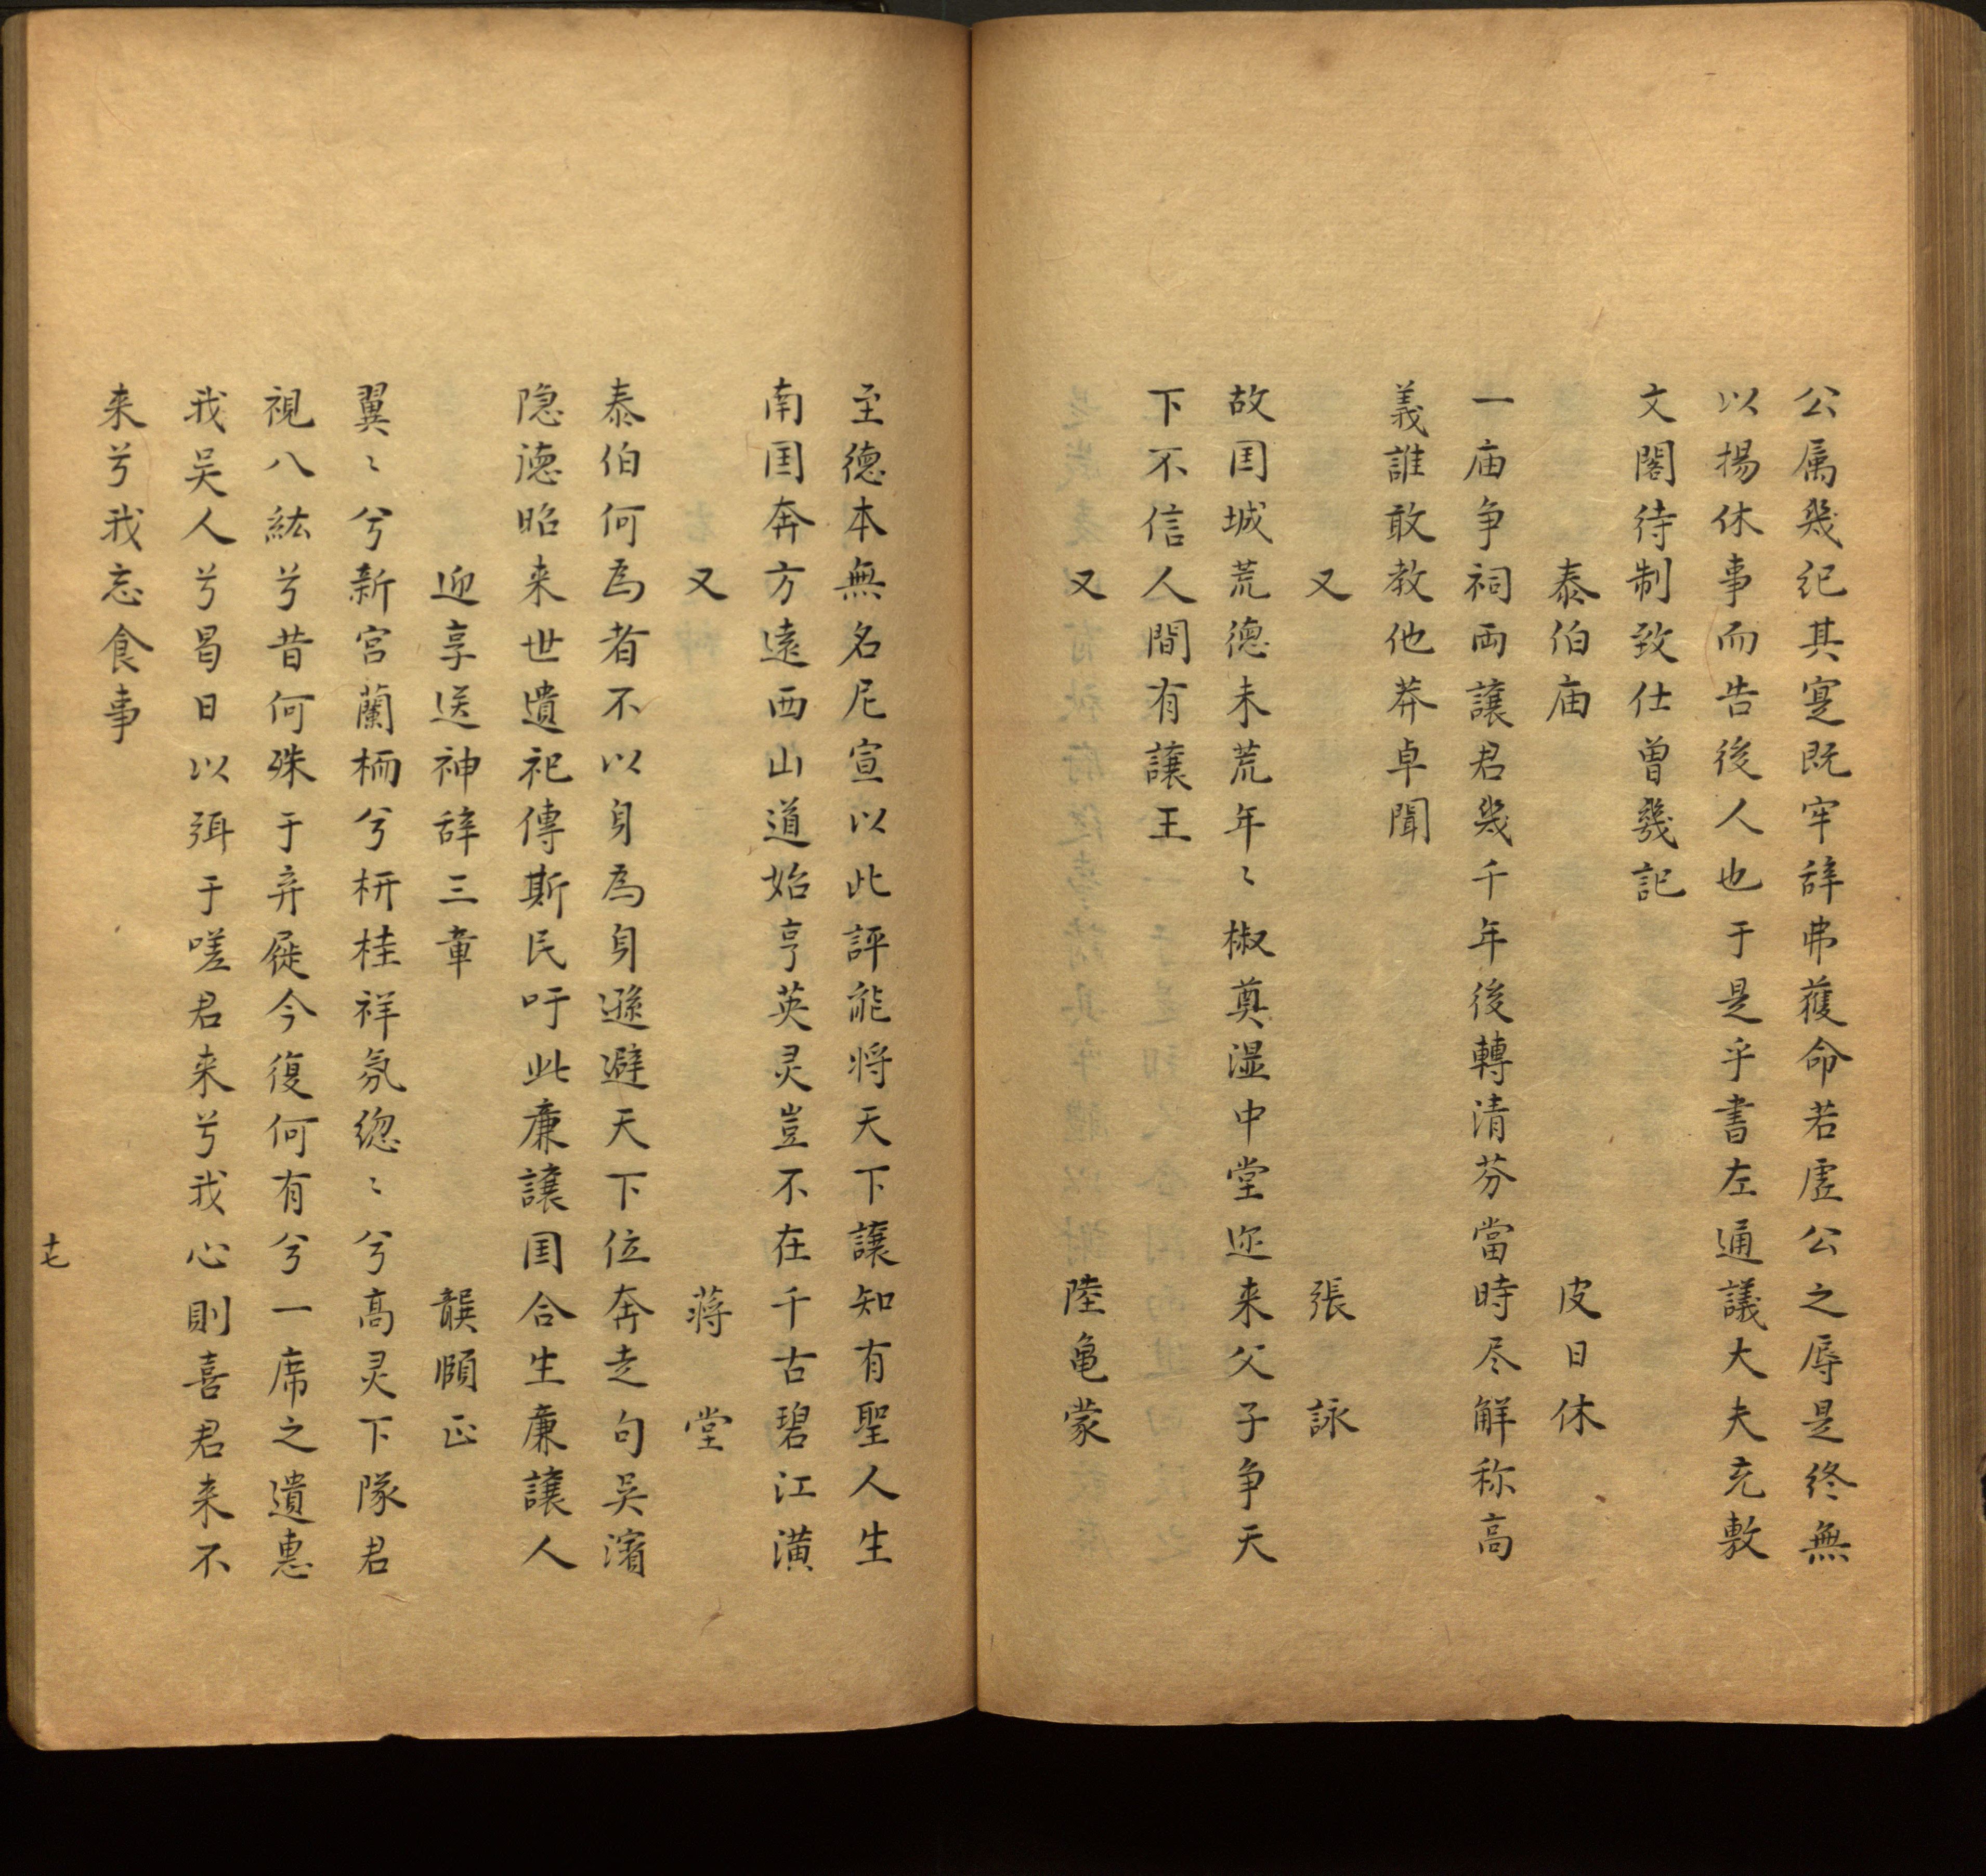 公属幾紀其寔既牢辞弗獲命若虚公之辱是終無
以揚休事而告後人也于是乎書左通議大夫充敷
文閣待制致仕曽幾記
泰伯庙 皮日休
一庙争祠両讓君幾千年後轉清芬當時尽解称高
義誰敢教他莽卓聞
又 張詠
故囯城荒德未荒年〻椒奠湿中堂迩来父子争天
下不信人間有讓王
又 陸亀蒙
至德本無名尼宣以此評能将天下讓知有聖人生
南囯奔方遠西山道始亨英灵豈不在千古碧江潢
又 蒋堂
泰伯何為者不以身為身遜避天下位奔走句吴濱
隐德昭来世遺祀傳斯民吁此廉讓囯合生廉讓人
迎享送神辞三章 龔頤正
翼〻兮新宫蘭栭兮枅桂祥氛緫〻兮高灵下隊君
視八紘兮昔何殊于弃屣今復何有兮一席之遺惠
我吴人兮曷日以弭于嗟君来兮我心則喜君来不
来兮我忘食事
十七